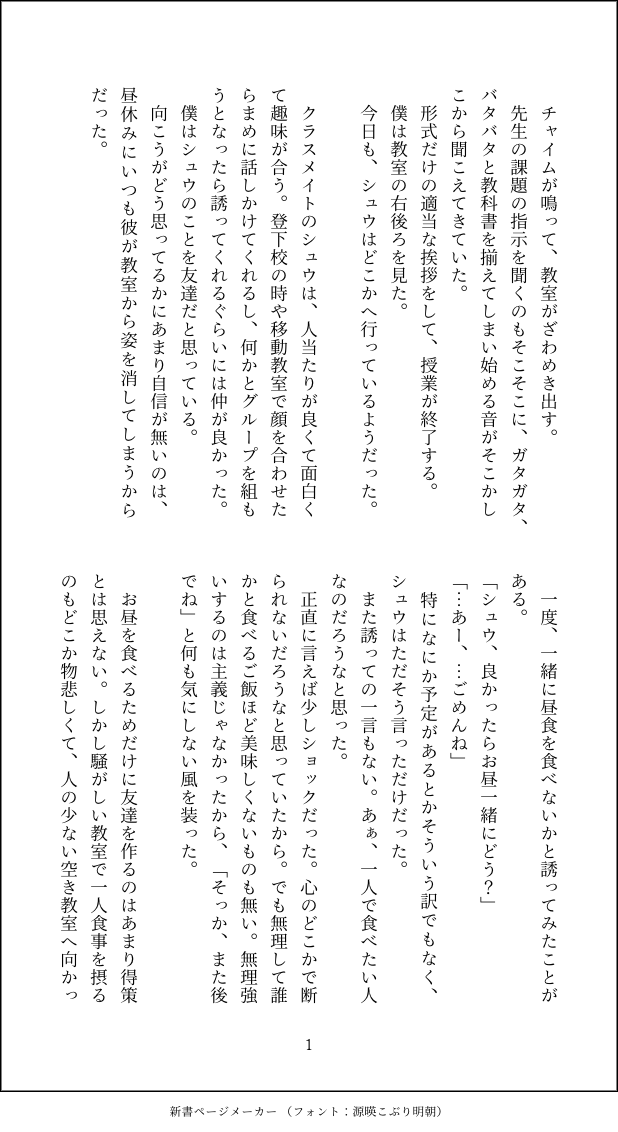 チャイムが鳴って、教室がざわめき出す。
先生の課題の指示を聞くのもそこそこに、ガタガタ、
バタバタと教科書を揃えてしまい始める音がそこかし
こから聞こえてきていた。
形式だけの適当な挨拶をして、授業が終了する。
僕は教室の右後ろを見た。
今日も、シュウはどこかへ行っているようだった。
クラスメイトのシュウは、人当たりが良くて面白く
て趣味が合う。登下校の時や移動教室で顔を合わせた
らまめに話しかけてくれるし、何かとグループを組も
うとなったら誘ってくれるぐらいには仲が良かった。
僕はシュウのことを友達だと思っている。
向こうがどう思ってるかにあまり自信が無いのは、
昼休みにいつも彼が教室から姿を消してしまうから
だった。
一度、一緒に昼食を食べないかと誘ってみたことが
ある。
「シュウ、良かったらお昼一緒にどう？」
「…あー、…ごめんね」
特になにか予定があるとかそういう訳でもなく、
シュウはただそう言っただけだった。
また誘っての一言もない。あぁ、一人で食べたい人
なのだろうなと思った。
正直に言えば少しショックだった。心のどこかで断
られないだろうなと思っていたから。でも無理して誰
かと食べるご飯ほど美味しくないものも無い。無理強
いするのは主義じゃなかったから、「そっか、また後
でね」と何も気にしない風を装った。
お昼を食べるためだけに友達を作るのはあまり得策
とは思えない。しかし騒がしい教室で一人食事を摂る
のもどこか物悲しくて、人の少ない空き教室へ向かっ
1
新書ページメーカー（フォント：源暎こぶり明朝）